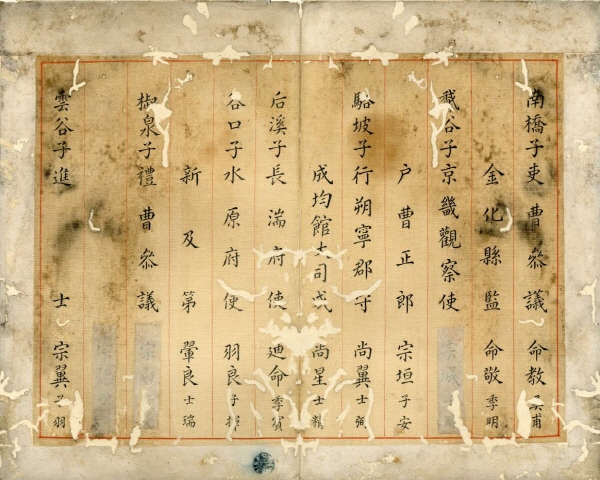 南橋子吏曹參議 命教 甫
金化縣監 命敬 季明
谷子京畿觀察使
戶曹正郎 宗垣 子安
駱坡子行朔寧郡守 尚翼 士弼
成均館大司成 尚星 士精
后溪子長湍府使 廸命 季賓
谷口子水原府使 羽良 子揮
新及第 翬良 士瑞
椒泉子禮曹參議 宗
雲谷子進士 宗翼 羽